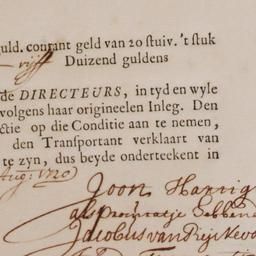 guld. courant geld van 20 stuiv. 't stuk
vijff Duizend guldens
de DIRECTEURS, in tyd en wyle
volgens haar origineelen Inleg. Den
ctie op die Conditie aan te nemen,
den Transportant verklaart van
te zyn, dus beyde onderteekent in
Aug: 1720
Joan
als
Jacobus van